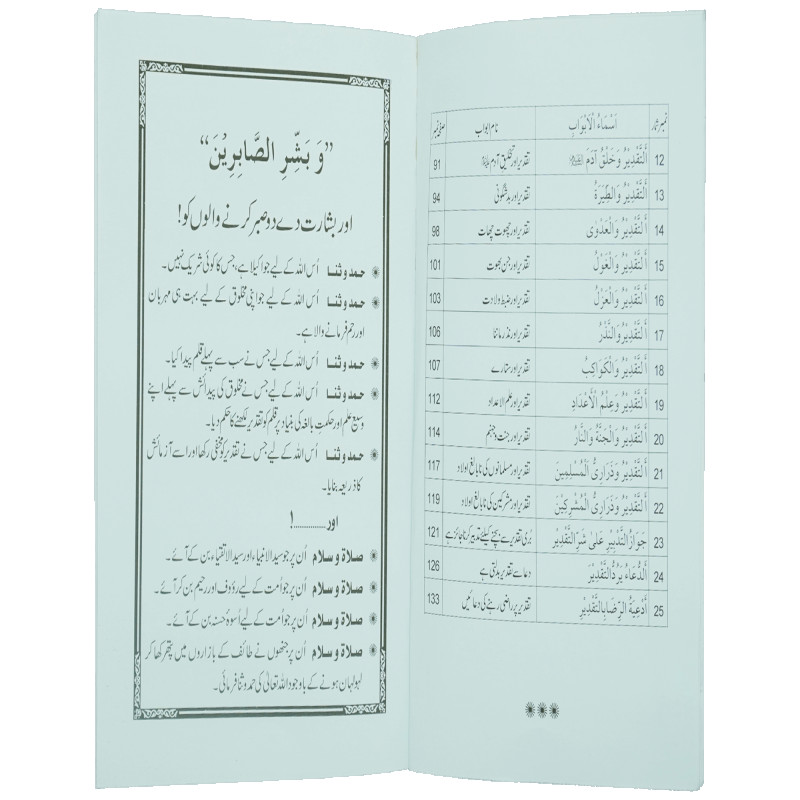 نمبر شمار اَسْمَاءُ الْاَبْوَابِ نام ابواب صفحہ نمبر
12 اَلتَّقْدِيْرُ وَ خَلْقُ آدَمَ تقدیر اور تخلیق آدم 91
13 اَلتَّقْدِيْرُ وَالطِّيَرَةُ تقدیر اور بدشگونی 94
14 اَلتَّقْدِيْرُ وَالْعَدْوٰى تقدیر اور چھوت چھات 98
15 اَلتَّقْدِيْرُ وَالْغَوْلُ تقدیر اور جن بھوت 101
16 اَلتَّقْدِيْرُ وَالْعَزْلُ تقدیر اور ضبط ولادت 103
17 اَلتَّقْدِيْرُ وَالنَّذْرُ تقدیر اور نذر ماننا 106
18 اَلتَّقْدِيْرُ وَالْكَوَاكِبُ تقدیر اور ستارے 107
19 اَلتَّقْدِيْرُ وَعِلْمُ الْأَعْدَادِ تقدیر اور علم الاعداد 112
20 اَلتَّقْدِيْرُ وَالْجَنَّةُ وَالنَّارُ تقدیر اور جنت و جہنم 114
21 اَلتَّقْدِيْرُ وَذَرَارِىُّ الْمُسْلِمِيْنَ تقدیر اور مسلمانوں کی نابالغ اولاد 117
22 اَلتَّقْدِيْرُ وَذَرَارِىُّ الْمُشْرِكِيْنَ تقدیر اور مشرکین کی نابالغ اولاد 119
23 جَوَازُ التَّدْبِيْرِ عَلىٰ شَرِّ التَّقْدِيْرِ بُری تقدیر سے بچنے کیلئے تدبیر کرنا جائز ہے 121
24 اَلدُّعَاءُ يَرُدُّ التَّقْدِيْرَ دعا سے تقدیر بدلتی ہے 126
25 اَدْعِيَةُ الرِّضَا بِالتَّقْدِيْرِ تقدیر پر راضی رہنے کی دعائیں 133
”وَ بَشِّرِ الصَّابِرِيْنَ“
اور بشارت دے دو صبر کرنے والوں کو!
حمد وثنا اُس اللہ کے لیے جو اکیلا ہے، جس کا کوئی شریک نہیں۔
حمد وثنا اُس اللہ کے لیے جو اپنی مخلوق کے لیے بہت ہی مہربان
اور رحم فرمانے والا ہے۔
حمد وثنا اُس اللہ کے لیے جس نے سب سے پہلے قلم پیدا کیا۔
حمد وثنا اُس اللہ کے لیے جس نے مخلوق کی پیدائش سے پہلے اپنے
وسیع علم اور حکمت بالغہ کی بنیاد پر قلم کو تقدیر لکھنے کا حکم دیا۔
حمد وثنا اُس اللہ کے لیے جس نے تقدیر کو مخفی رکھا اور اسے آزمائش
کا ذریعہ بنایا۔
اور ............!
صلاۃ وسلام اُن پر جو سید الانبیاء اور سید الاتقیاء بن کے آئے۔
صلاۃ وسلام اُن پر جو اُمت کے لیے رؤوف اور رحیم بن کر آئے۔
صلاۃ وسلام اُن پر جو اُمت کے لیے اُسوۂ حسنہ بن کے آئے۔
صلاۃ وسلام اُن پر جنھوں نے طائف کے بازاروں میں پتھر کھا کر
لہولہان ہونے کے باوجود اللہ تعالیٰ کی حمد وثنا فرمائی۔